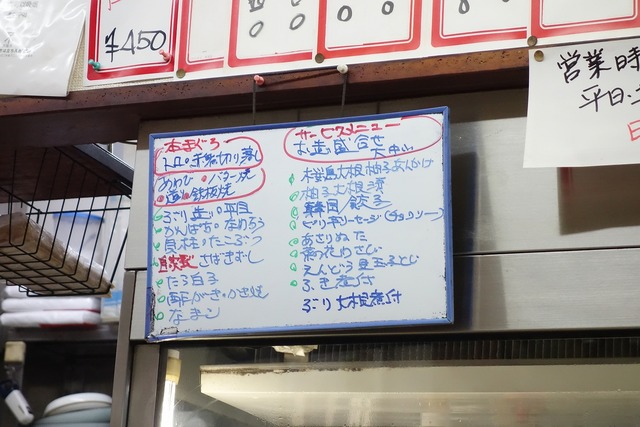 ¥450
営業時
平日・土
本まぐろ
トロ・手巻 切り落し
あわび・バター焼
・造り・鉄板焼
ぶり造り・平目
かんぱち・なめろう
貝柱・たこぶつ
自家製 さばきずし
たら白子
酢がき・かき焼
なまこ
サービスメニュー
お造り盛合せ
大中小
桜島大根柚子あんかけ
柚子大根漬
餃子
ピリ辛ソーセージ(チョリソー)
あさりぬた
菊花わさび
えんどう豆玉子とじ
ふき煮付
ぶり大根煮付